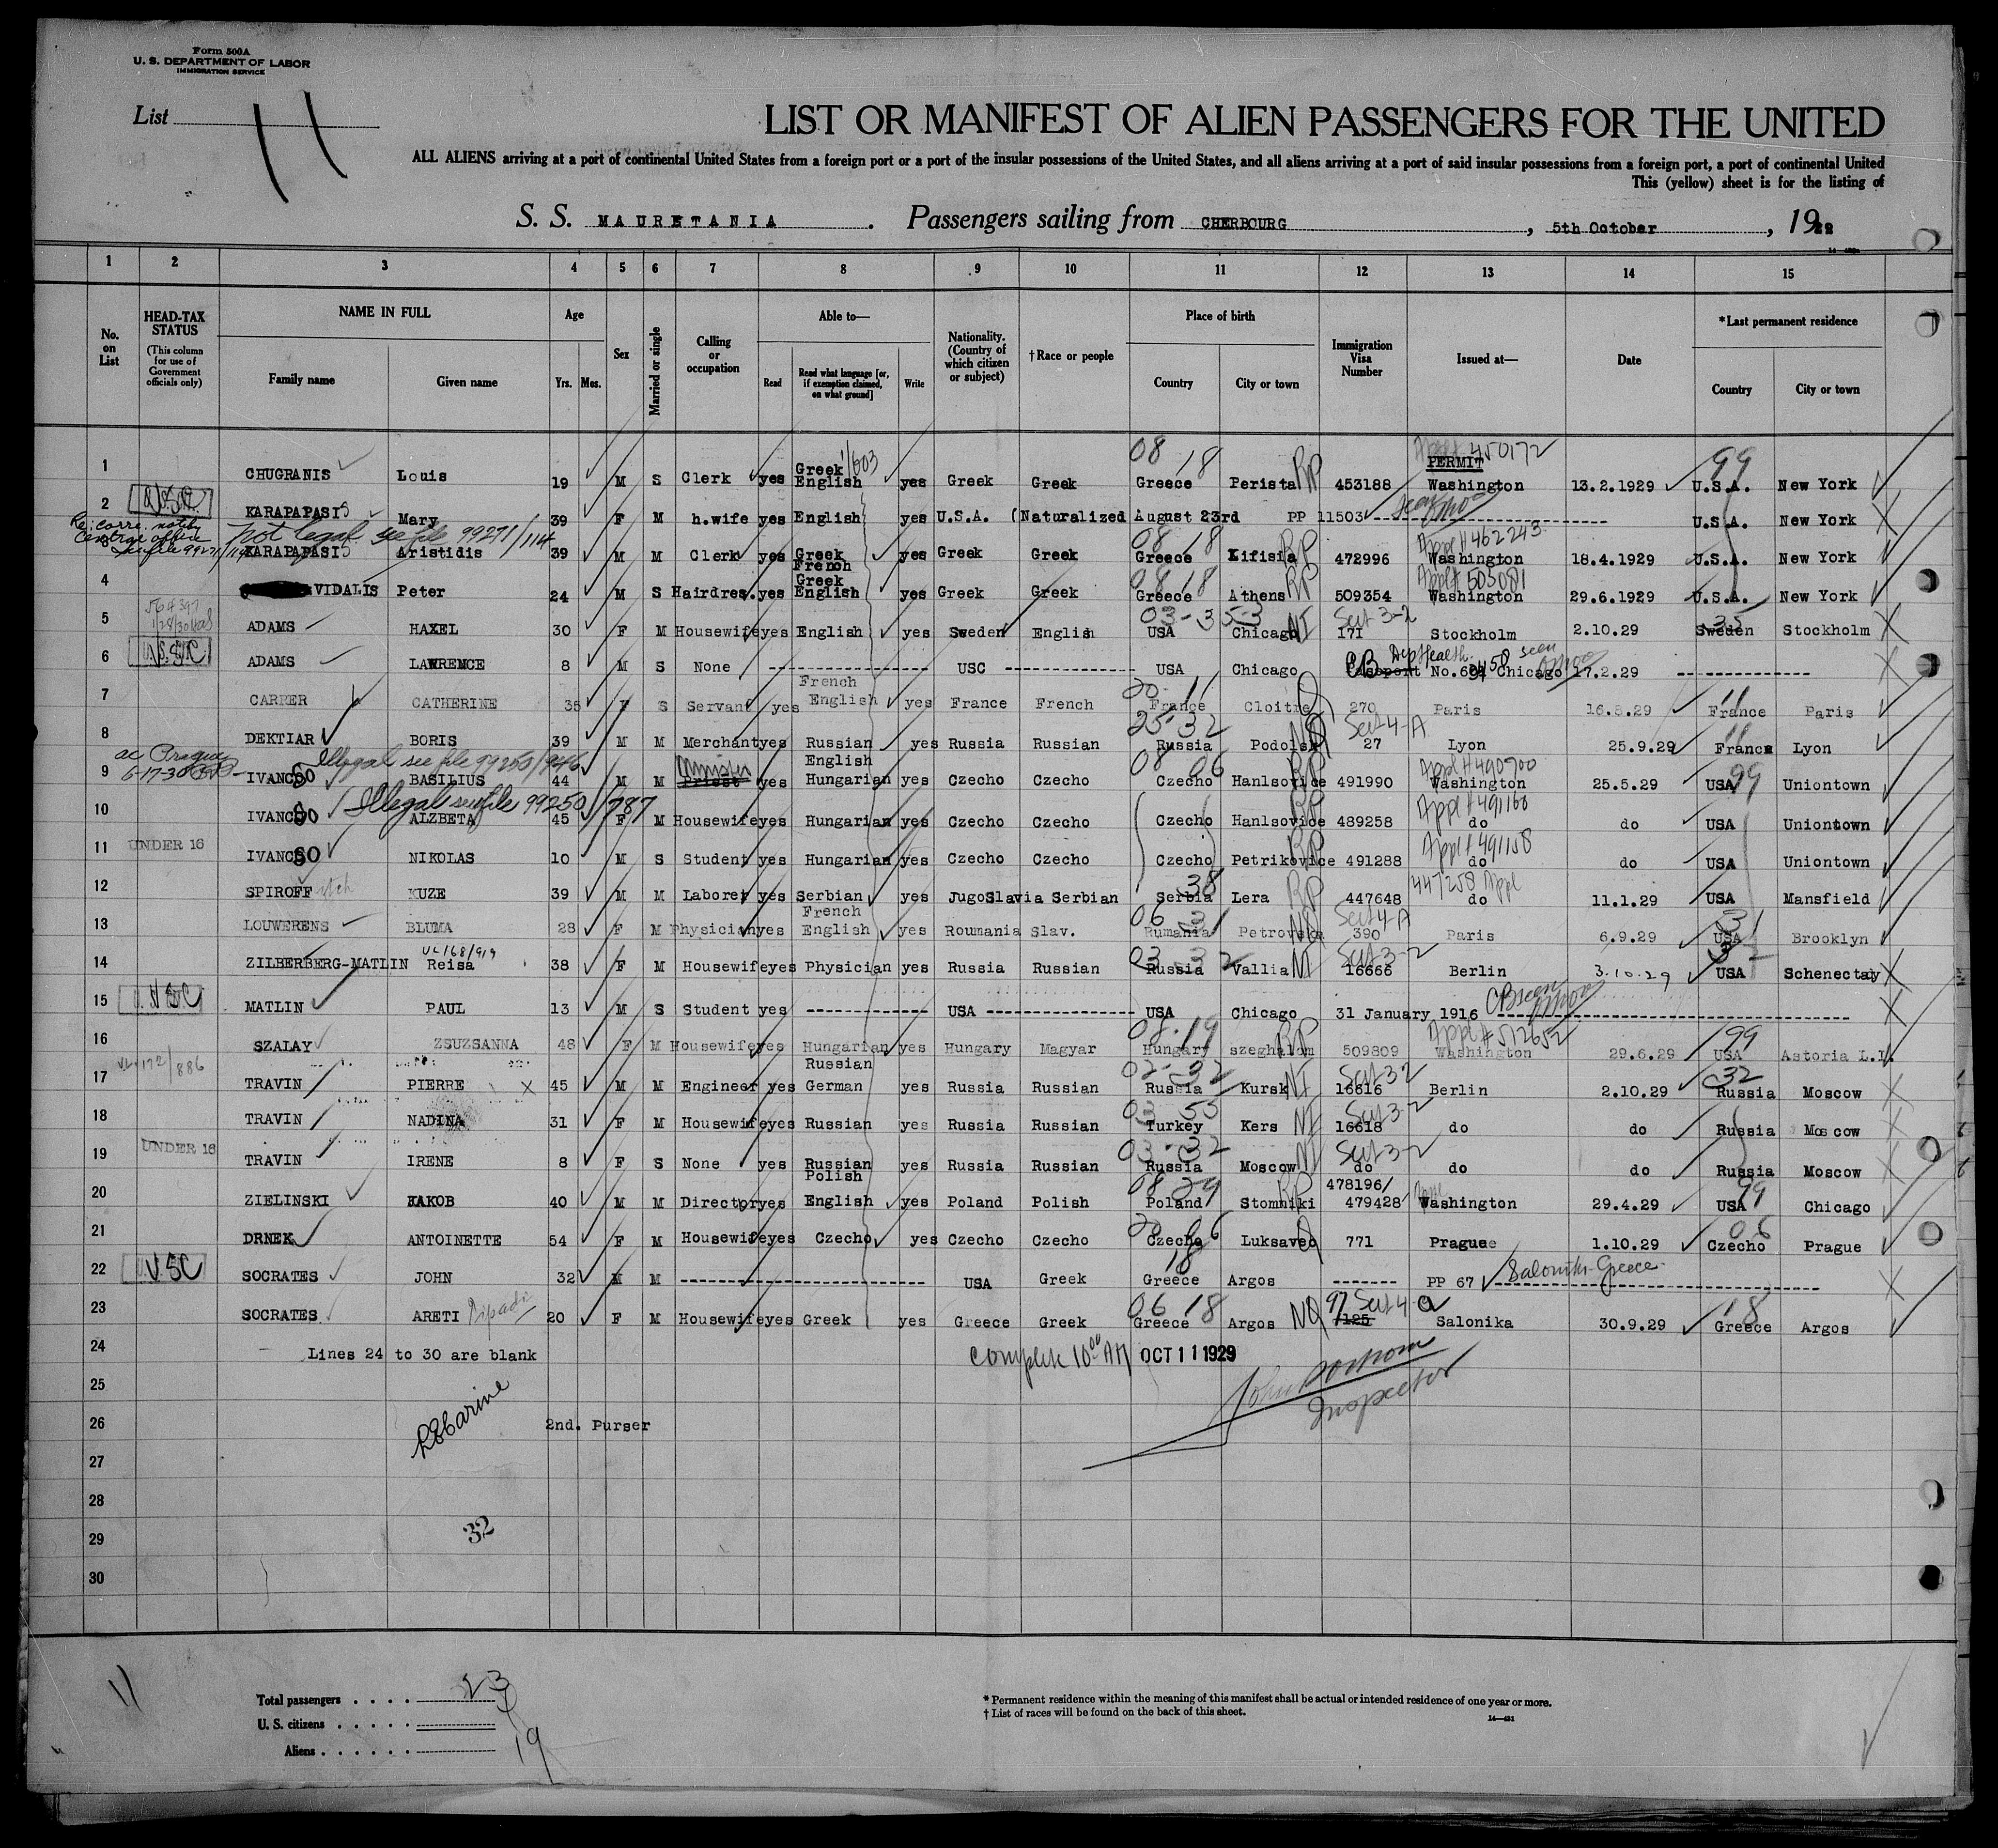 Form 500A
U. S. DEPARTMENT OF LABOR
IMMIGRATION SERVICE
List 11
LIST OR MANIFEST OF ALIEN PASSENGERS FOR THE UNITED
ALL ALIENS arriving at a port of continental United States from a foreign port or a port of the insular possessions of the United States, and all aliens arriving at a port of said insular possessions from a foreign port, a port of continental United
This (yellow) sheet is for the listing of
S. S. MAURETANIA. Passengers sailing from CHERBOURG, 5th October, 19
1 2 3 4 5 6 7 8 9 10 11 12 13 14 15
No. on List
HEAD-TAX STATUS (This column for use of Government officials only)
NAME IN FULL Family name Given name
Age Yrs. Mos.
Sex
Married or single
Calling or occupation
Able to— Read Read what language [or, if exemption claimed, on what ground] Write
Nationality. (Country of which citizen or subject)
†Race or people
Place of birth Country City or town
Immigration Visa Number
Issued at—
Date
*Last permanent residence Country City or town
08 18 450172 99
1 CHUGRANIS Louis 19 M S Clerk yes Greek English yes Greek Greek Greece Perista RP 453188 PERMIT Washington 13.2.1929 U.S.A. New York
2 USC KARAPAPASIS Mary 39 F M h.wife yes English yes U.S.A. (Naturalized August 23rd PP 11503 seen U.S.A. New York
Re: corre. notify Central office see file 99271/114 not legal see file 99271/114
3 KARAPAPASIS Aristidis 39 M M Clerk yes Greek French yes Greek Greek 08 18 Greece Kifisia RP 472996 Appl # 462243 Washington 18.4.1929 U.S.A. New York
4 VIDALIS Peter 24 M S Hairdres. yes Greek English yes Greek Greek 08 18 Greece Athens RP 509354 Appl # 503081 Washington 29.6.1929 U.S.A. New York
5 ADAMS HAZEL 30 F M Housewife yes English yes Sweden English 03-353 USA Chicago NI Sect 3-2 171 Stockholm 2.10.29 35 Sweden Stockholm
6 USC ADAMS LAWRENCE 8 M S None USC USA Chicago Passport No. Chicago 17.2.29
7 CARRER CATHERINE 35 F S Servant yes French English yes France French 20-11 France Cloitre Q 270 Paris 16.8.29 11 France Paris
8 DEKTIAR BORIS 39 M M Merchant yes Russian yes Russia Russian 25-32 Russia Podolsk NQ Sect 4-A 27 Lyon 25.9.29 11 France Lyon
ac Prague 6-17-30 Illegal see file 99250/846
9 IVANCSO BASILIUS 44 M M Priest Minister yes English Hungarian yes Czecho Czecho 08 06 Czecho Hanlsovice RP 491990 Appl # 490900 Washington 25.5.29 USA 99 Uniontown
Illegal see file 99250/787
10 IVANCSO ALZBETA 45 F M Housewife yes Hungarian yes Czecho Czecho Czecho Hanlsovice RP 489258 Appl # 491160 do do USA Uniontown
11 UNDER 16 IVANCSO NIKOLAS 10 M S Student yes Hungarian yes Czecho Czecho Czecho Petrikovice RP 491288 Appl # 491158 do do USA Uniontown
12 SPIROFF itch KUZE 39 M M Laborer yes Serbian yes JugoSlavia Serbian 38 Serbia Lera RP 447648 447258 Appl do 11.1.29 USA Mansfield
13 LOUWERENS BLUMA 28 F M Physician yes French English yes Roumania Slav. 06 31 Rumania Petrovska NQ Sect 4 A 390 Paris 6.9.29 31 USA Brooklyn
VL 168/919
14 ZILBERBERG-MATLIN Reisa 38 F M Housewife yes Physician yes Russia Russian 03-32 Russia Vallia NI Sect 3-2 16666 Berlin 3.10.29 32 USA Schenectady
15 USC MATLIN PAUL 13 M S Student yes USA USA Chicago 31 January 1916 CB seen
16 SZALAY ZSUZSANNA 48 F M Housewife yes Hungarian yes Hungary Magyar 08-19 Hungary szeghalom RP 509809 Appl # 512652 Washington 29.6.29 99 USA Astoria L.I.
17 VL-172/886 TRAVIN PIERRE X 45 M M Engineer yes Russian German yes Russia Russian 02-32 Russia Kursk NI Sect 3 2 16616 Berlin 2.10.29 32 Russia Moscow
18 TRAVIN NADINA 31 F M Housewife yes Russian yes Russia Russian 03 55 Turkey Kers NI Sect 3-2 16618 do do Russia Moscow
19 UNDER 16 TRAVIN IRENE 8 F S None yes Russian yes Russia Russian 03-32 Russia Moscow NI Sect 3-2 do do do Russia Moscow
20 ZIELINSKI JAKOB 40 M M Director yes Polish English yes Poland Polish 08 29 Poland Stomniki RP 478196/ 479428 Appl Washington 29.4.29 99 USA Chicago
21 DRNEK ANTOINETTE 54 F M Housewife yes Czecho yes Czecho Czecho 20 06 Czecho Luksavec Q 771 Prague 1.10.29 06 Czecho Prague
22 USC SOCRATES JOHN 32 M M USA Greek 18 Greece Argos PP 67 Saloniki-Greece
23 SOCRATES ARETI 20 F M Housewife yes Greek yes Greece Greek 06 18 Greece Argos NQ 97 Sect 4-a 125 Salonika 30.9.29 18 Greece Argos
24 Lines 24 to 30 are blank Complete 10 00 AM OCT 11 1929
25 Inspector
26 2nd. Purser
27
28
29 32
30
11
Total passengers . . . . 23
U. S. citizens . . . . .
Aliens . . . . . . 19
* Permanent residence within the meaning of this manifest shall be actual or intended residence of one year or more.
† List of races will be found on the back of this sheet.